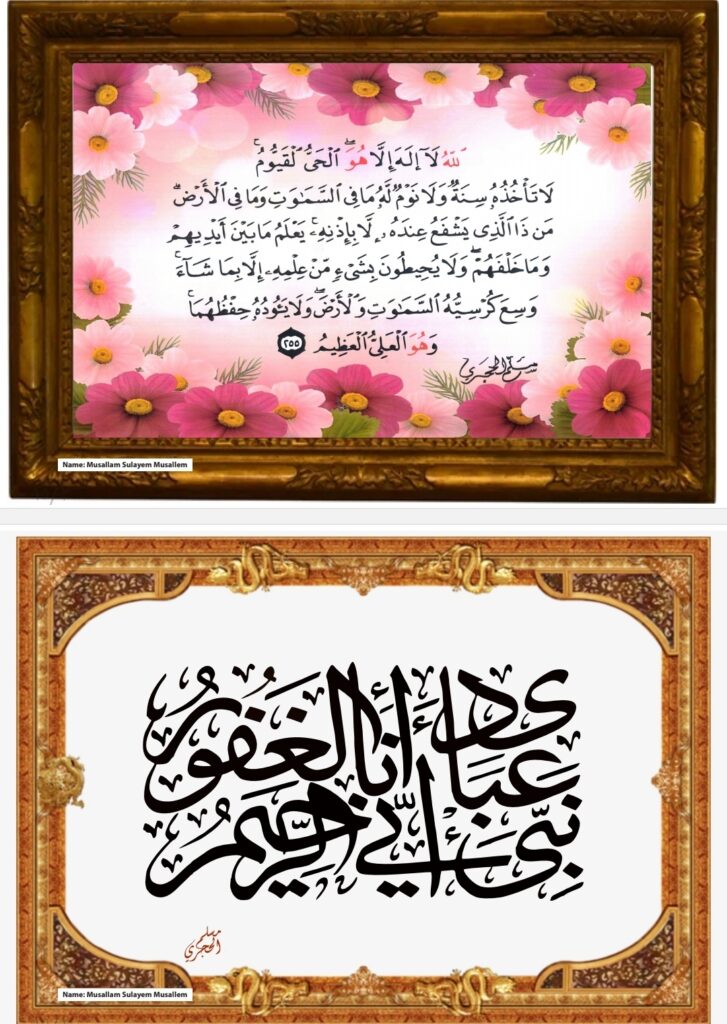 ٱللَّهُ لَآ إِلَـٰهَ إِلَّا هُوَ ۖ ٱلْحَىُّ ٱلْقَيُّومُ ۚ
لَا تَأْخُذُهُۥ سِنَةٌ وَلَا نَوْمٌ لَّهُۥ مَا فِى ٱلسَّمَـٰوَٰتِ وَمَا فِى ٱلْأَرْضِ ۗ
مَن ذَا ٱلَّذِى يَشْفَعُ عِندَهُۥ إِلَّا بِإِذْنِهِۦ ۚ يَعْلَمُ مَا بَيْنَ أَيْدِيهِمْ
وَمَا خَلْفَهُمْ ۖ وَلَا يُحِيطُونَ بِشَىْءٍ مِّنْ عِلْمِهِۦٓ إِلَّا بِمَا شَآءَ ۚ
وَسِعَ كُرْسِيُّهُ ٱلسَّمَـٰوَٰتِ وَٱلْأَرْضَ ۖ وَلَا يَـُٔودُهُۥ حِفْظُهُمَا ۚ
وَهُوَ ٱلْعَلِىُّ ٱلْعَظِيمُ ٢٥٥
مسلم الحجري
Name: Musallam Sulayem Musallem
نَبِّئْ عِبَادِى أَنِّى أَنَا الْغَفُورُ الرَّحِيمُ
مسلم
الحجري
Name: Musallam Sulayem Musallem